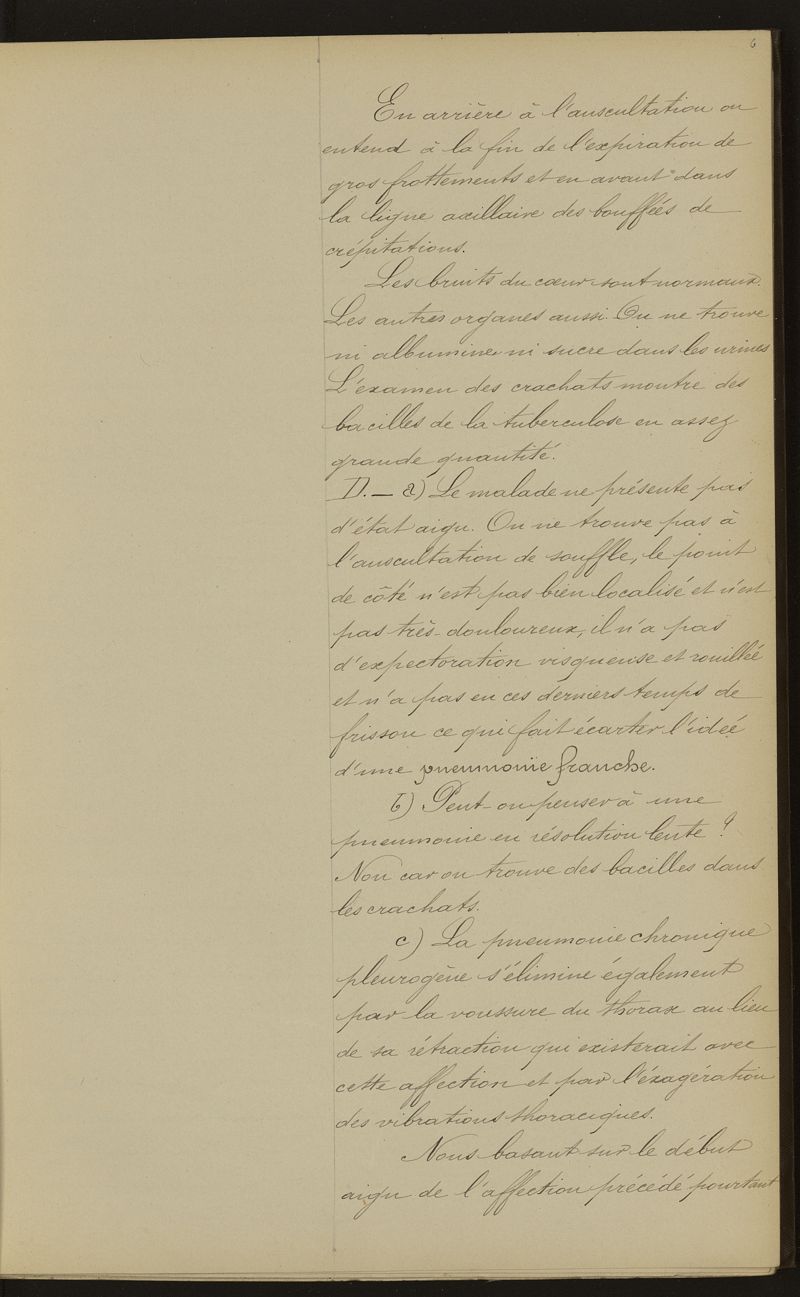 6
En arrière à l'auscultation on
entend à la fin de l'expiration de
gros frottements et en avant dans
la ligne axillaire des bouffées de
crépitations.
Les bruits du cœur sont normaux.
Les autres organes aussi. On ne trouve
ni albumine ni sucre dans les urines
L'examen des crachats montre des
bacilles de la tuberculose en assez
grande quantité.
D. — a) Le malade ne présente pas
d'état aigu. On ne trouve pas à
l'auscultation de souffle, le point
de côté n'est pas bien localisé et n'est
pas très douloureux, il n'a pas
d'expectoration visqueuse et rouillée
et n'a pas eu ces derniers temps de
frisson ce qui fait écarter l'idée
d'une pneumonie franche.
b) Peut-on penser à une
pneumonie en résolution lente ?
Non car on trouve des bacilles dans
les crachats.
c) La pneumonie chronique
pleurogène s'élimine également
par la voussure du thorax au lieu
de sa rétraction qui existerait avec
cette affection et par l'éxagération
des vibrations thoraciques.
Nous basant sur le début
aigu de l'affection précédé pourtant